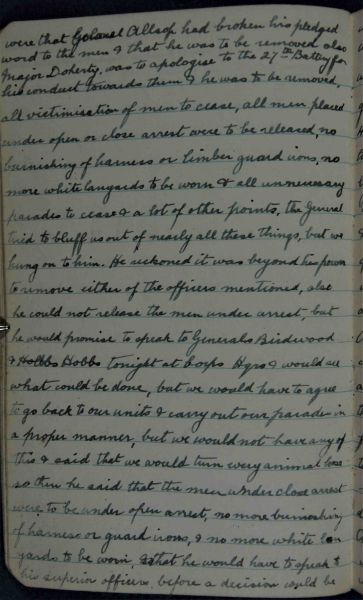 were that Colonel Allsop had broken his pledged
word to the men & that he was to be removed also
Major Doherty, was to apologise to the 27th Battery for
his conduct towards them & he was to be removed,
all victimisation of men to cease, all men placed
under open or close arrest were to be released, no
burnishing of harness or limber guard irons, no
more white lanyards to be worn & all unnecessary
parades to cease & a lot of other points, the General
tried to bluff us out of nearly all these things, but we
hung on to him. He reckoned it was beyond his power
to remove either of the officers mentioned, also
he could not release the men under arrest, but
he would promise to speak to Generals Birdwood
& Hobbs Hobbs tonight at Corps Hqrs & would see
what could be done, but we would have to agree
to go back to our units & carry out our parades in
a proper manner, but we would not have any of
this & said that we would turn every animal loose
so then he said that the men under close arrest
were to be under open arrest, no more burnishing
of harness or guard irons, & no more white lan
yards to be worn, & that he would have to speak to
his superior officers before a decision could be